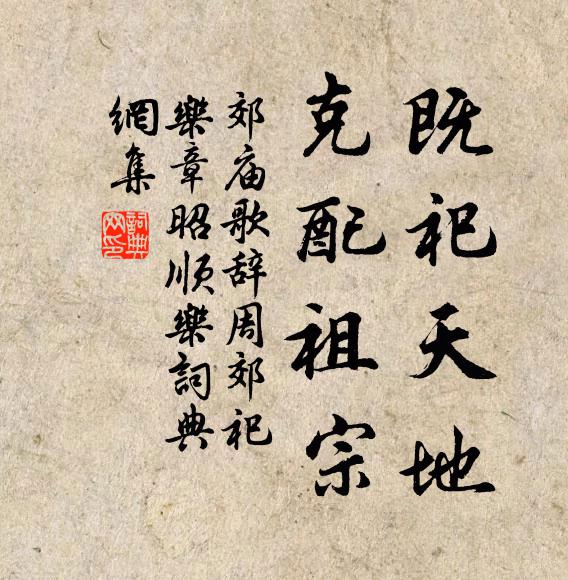 既祀天地
克配祖宗
郊庙歌辞周郊祀
樂章昭顺樂詞典
網集
詞典网印